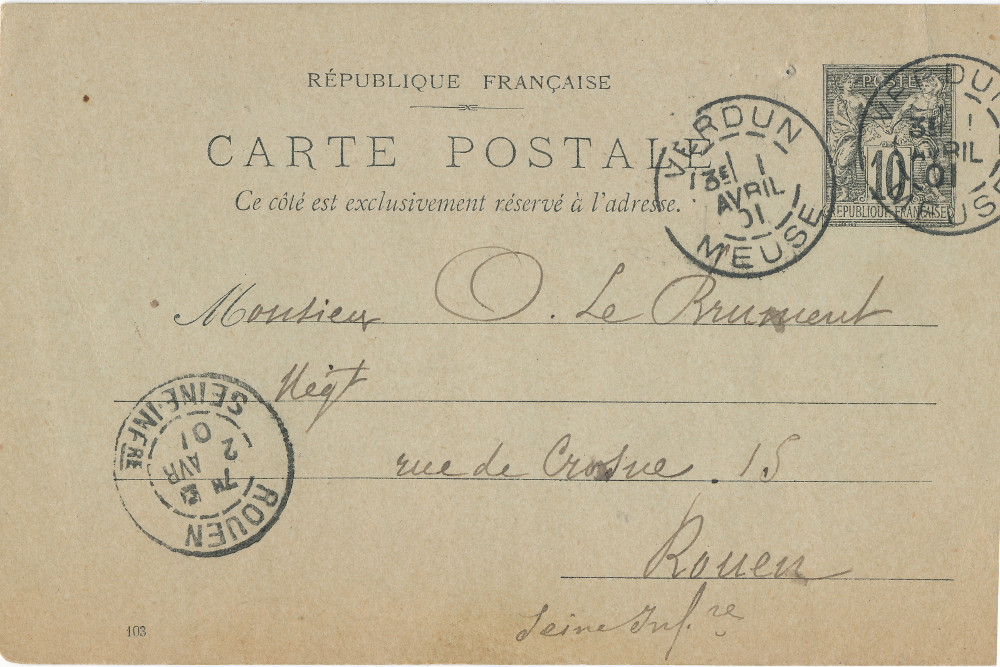 RÉPUBLIQUE FRANÇAISE
CARTE POSTALE
Ce côté est exclusivement réservé à l'adresse.
VERDUN
3E 1
AVRIL
01
MEUSE
POSTE
10
RÉPUBLIQUE FRANÇAISE
VERDUN
3E 1
AVRIL
01
MEUSE
Monsieur O. Le Brument
Négt
rue de Crosne. 15
Rouen
Seine Inf.re
ROUEN
7M
AVR
2
01
SEINE-INFRE
103